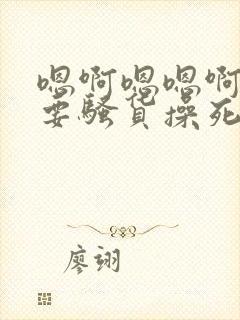 嗯啊嗯嗯啊
要骚货操死
廖翊